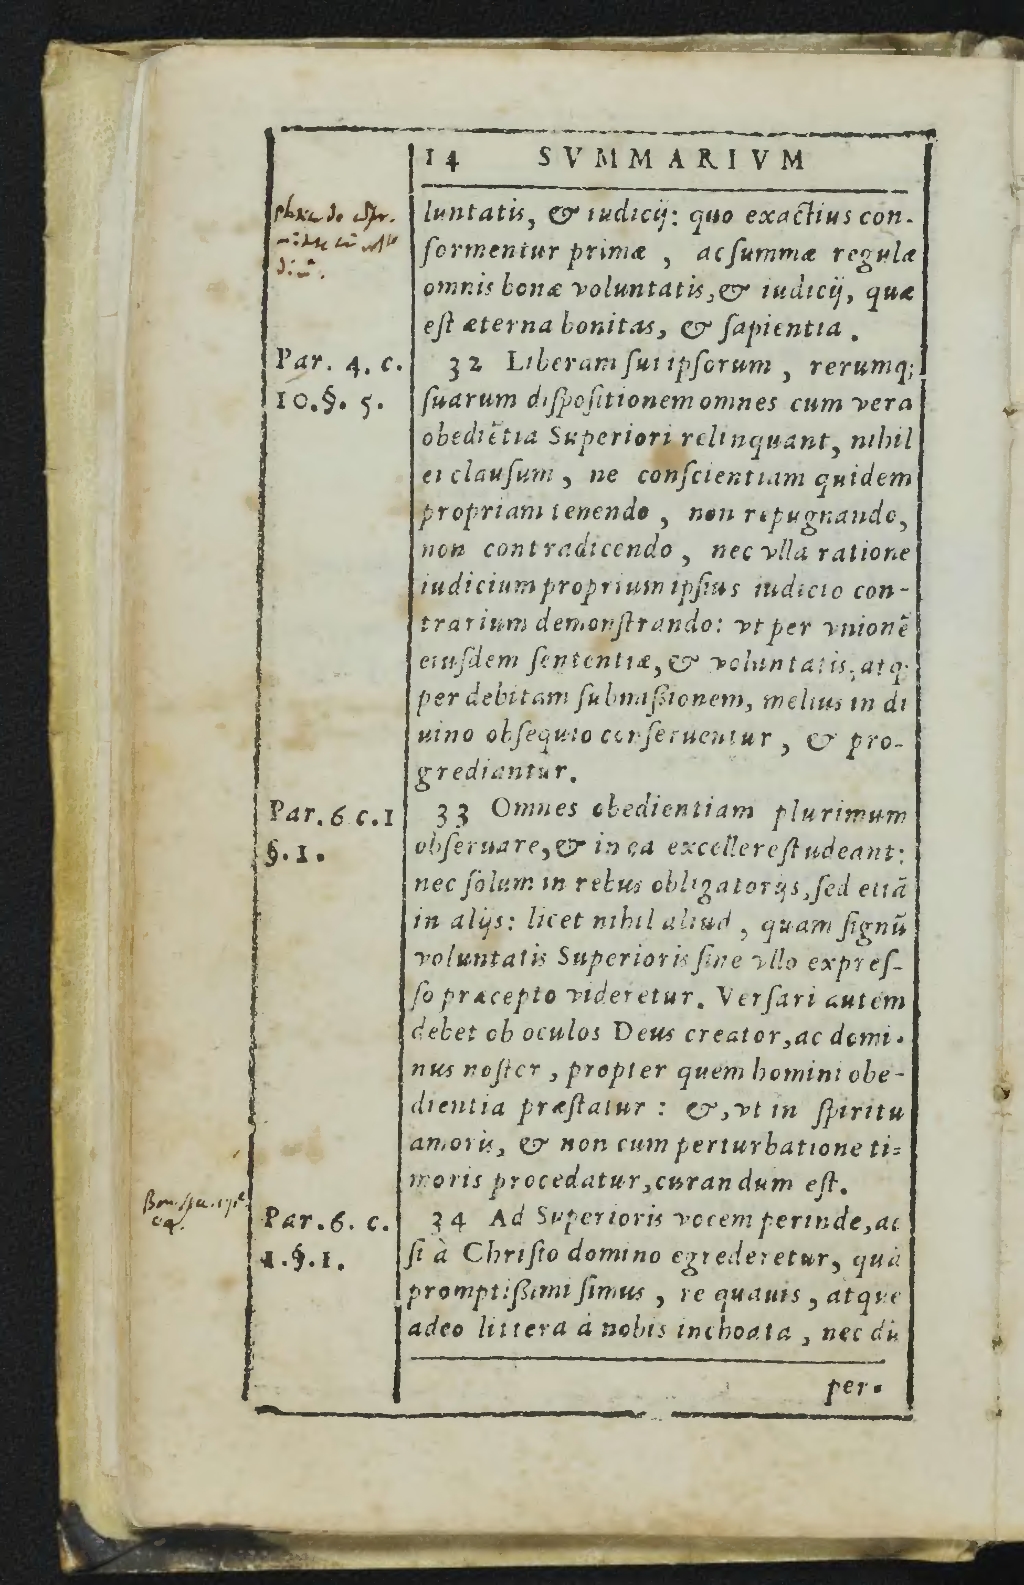 14 SVMMARIVM
luntatis, & iudicij: quo exactius con-
formentur primæ, ac ſummæ regulæ
omnis bonæ voluntatis, & iudicij, quæ
eſt æterna bonitas, & ſapientia.
Par. 4. c.
10. §. 5.
32 Liberam ſui ipſorum, rerumq;
ſuarum diſpoſitionem omnes cum vera
obediētia Superiori relinquant, nihil
ei clauſum, ne conſcientiam quidem
propriam tenendo, non repugnando,
non contradicendo, nec vlla ratione
iudicium proprium ipſius iudicio con-
trarium demonſtrando: vt per vnionē
eiuſdem ſententiæ, & voluntatis, atq;
per debitam ſubmiſsionem, melius in di
uino obſequio conſeruentur, & pro-
grediantur.
Par. 6 c. 1
§. 1.
33 Omnes obedientiam plurimum
obſeruare, & in ea excellere ſtudeant:
nec ſolum in rebus obligatorijs, ſed etiā
in alijs: licet nihil aliud, quam ſignū
voluntatis Superioris ſine vllo expreſ-
ſo præcepto videretur. Verſari autem
debet ob oculos Deus creator, ac domi-
nus noſter, propter quem homini obe-
dientia præſtatur: &, vt in ſpiritu
amoris, & non cum perturbatione ti-
moris procedatur, curandum eſt.
Par. 6. c.
1. §. 1.
34 Ad Superioris vocem perinde, ac
ſi à Chriſto domino egrederetur, quā
promptiſsimi ſimus, re quauis, atque
adeo littera à nobis inchoata, nec dū
per-